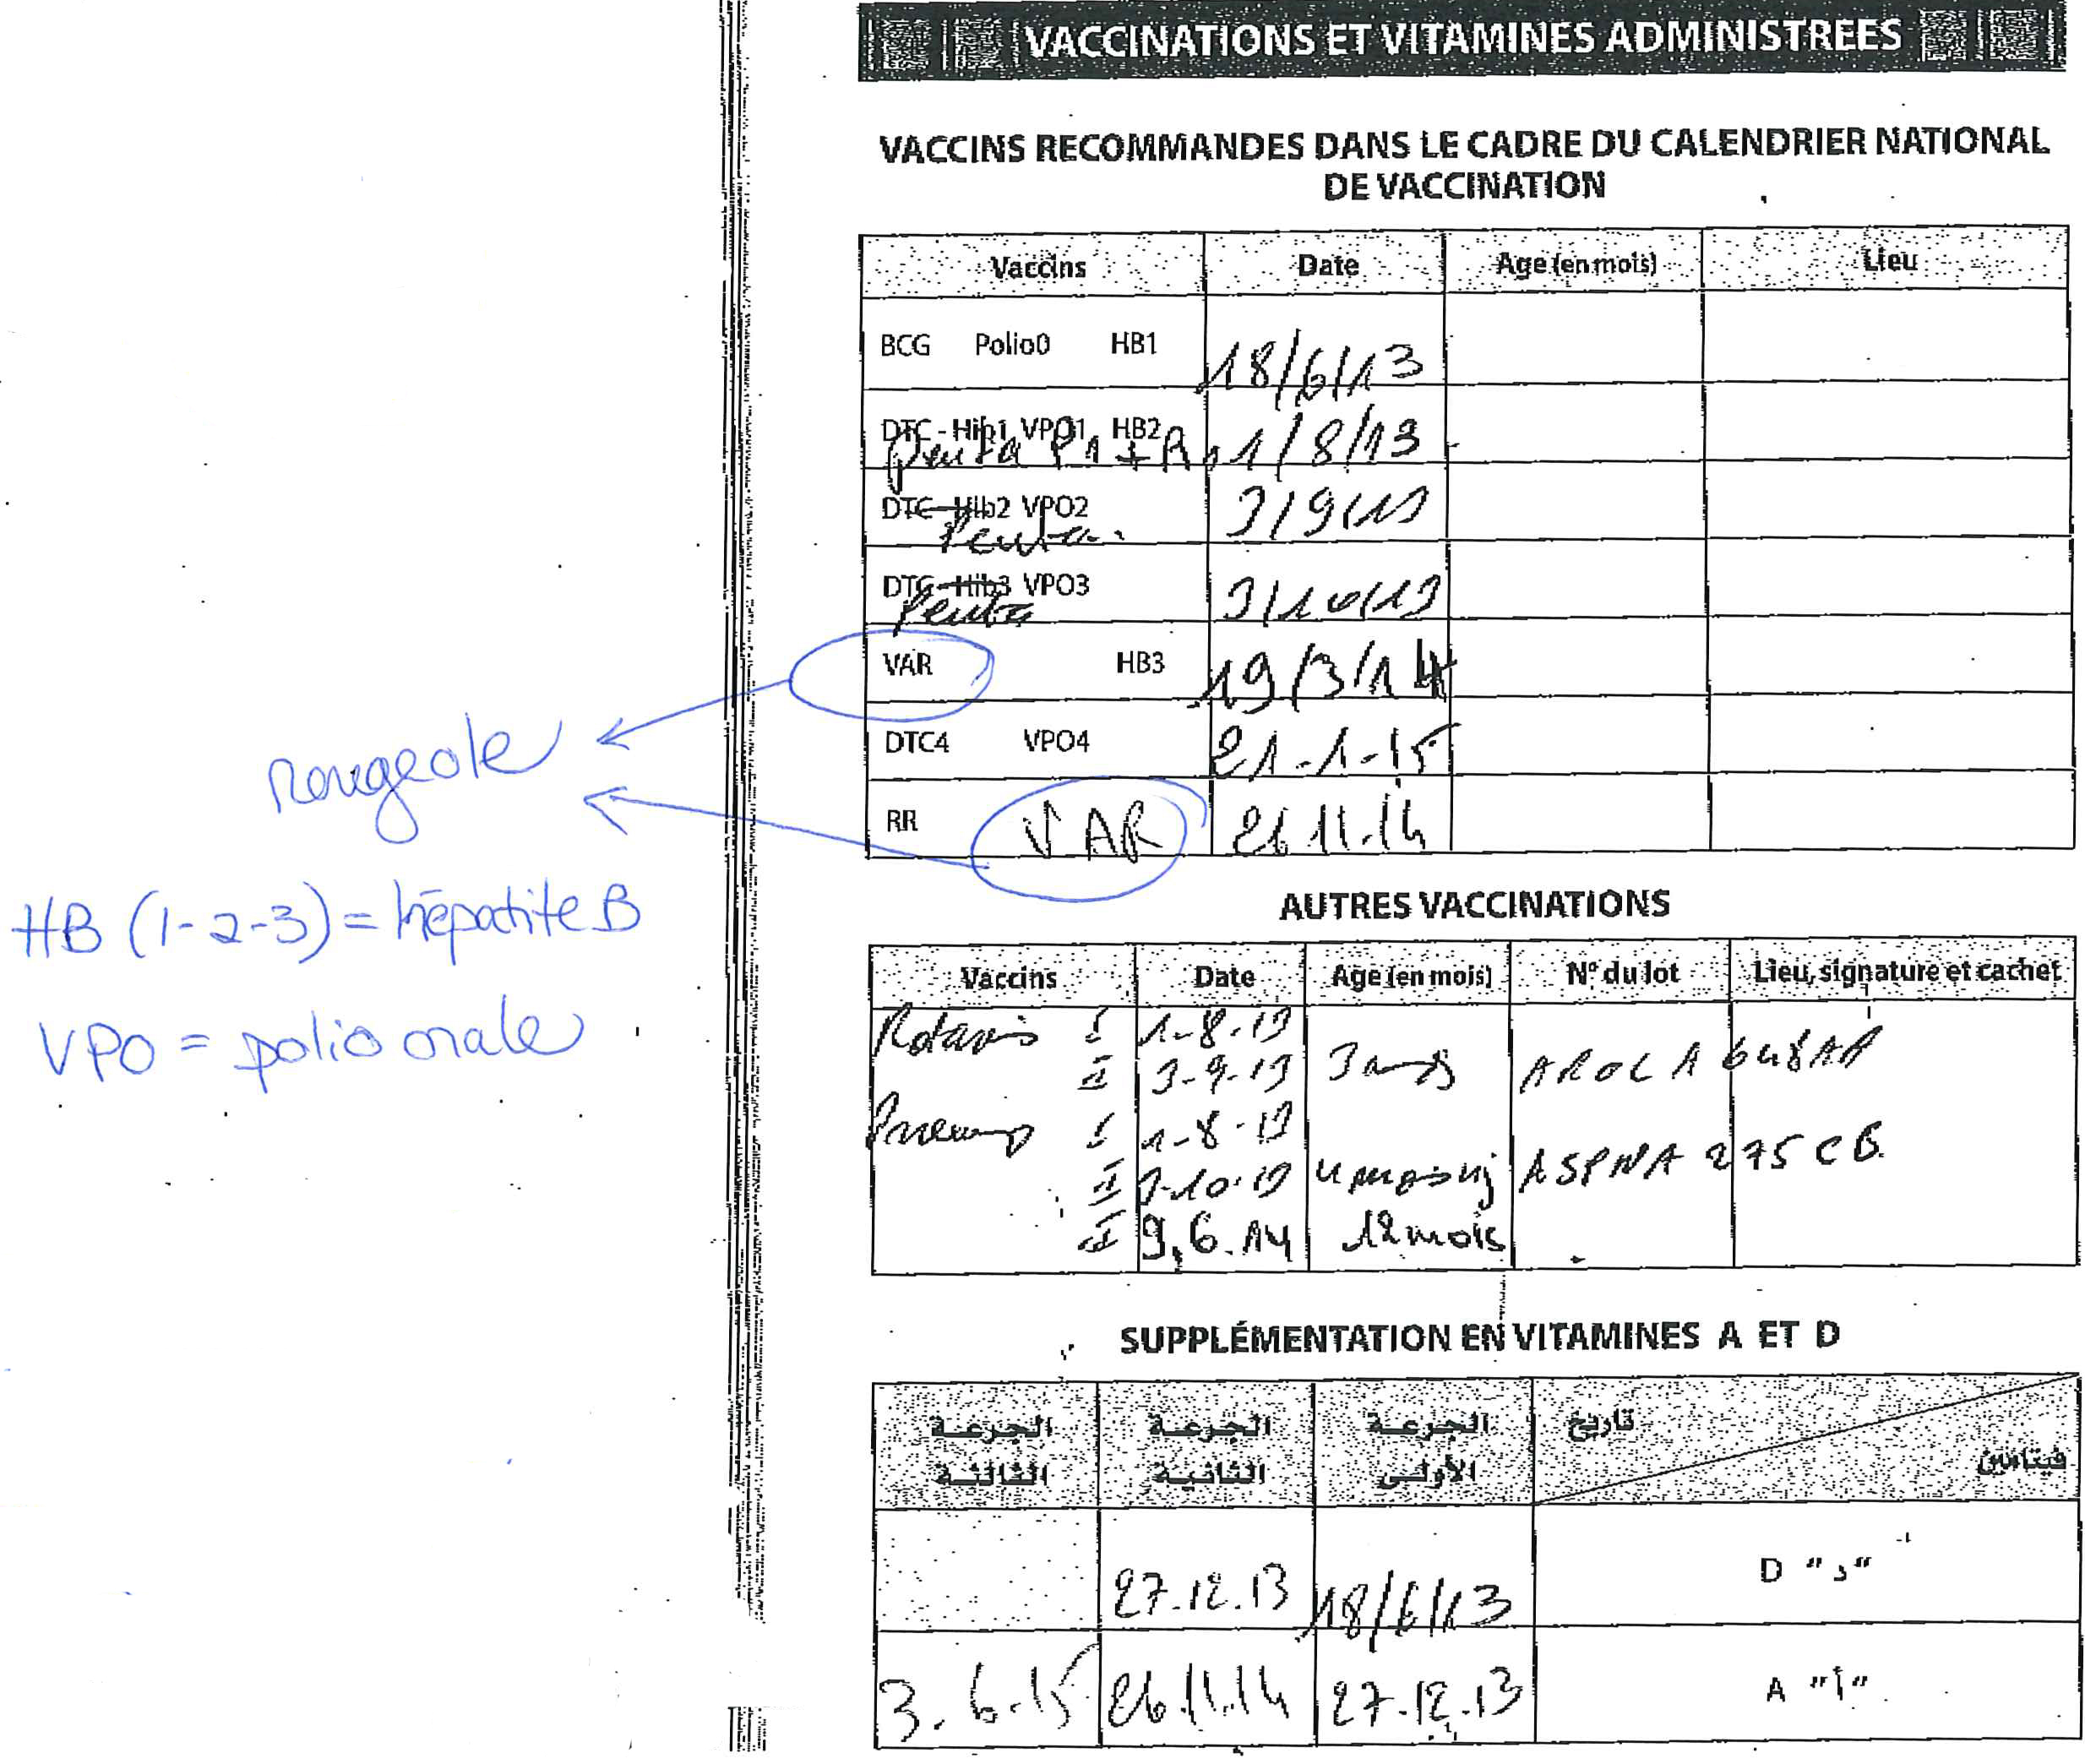 VACCINATIONS ET VITAMINES ADMINISTREES
VACCINS RECOMMANDES DANS LE CADRE DU CALENDRIER NATIONAL
DE VACCINATION
Vaccins Date Age (en mois) Lieu
BCG Polio0 HB1 18/6/13
DTC - Hib1 VPO1 HB2 1/8/13
Penta P1 + R1
DTC-Hib2 VPO2 3/9/13
Penta
DTC-Hib3 VPO3 3/10/13
Penta
VAR HB3 19/3/14
DTC4 VPO4 21-1-15
RR VAR 26.11.14
rougeole
HB (1-2-3) = hépatite B
VPO = polio orale
AUTRES VACCINATIONS
Vaccins Date Age (en mois) N° du lot Lieu, signature et cachet
I 1-8-13
II 3-9-13 AROLA 648AA
I 1-8-13
II 3-10-13 ASPNA 275CB
III 9.6.14 12 mois
SUPPLÉMENTATION EN VITAMINES A ET D
تاريخ الجرعة الجرعة الجرعة
فيتامين الأولى الثانية الثالثة
27.12.13 18/6/13 D "د"
3.6.15 26.11.14 27.12.13 A "أ"